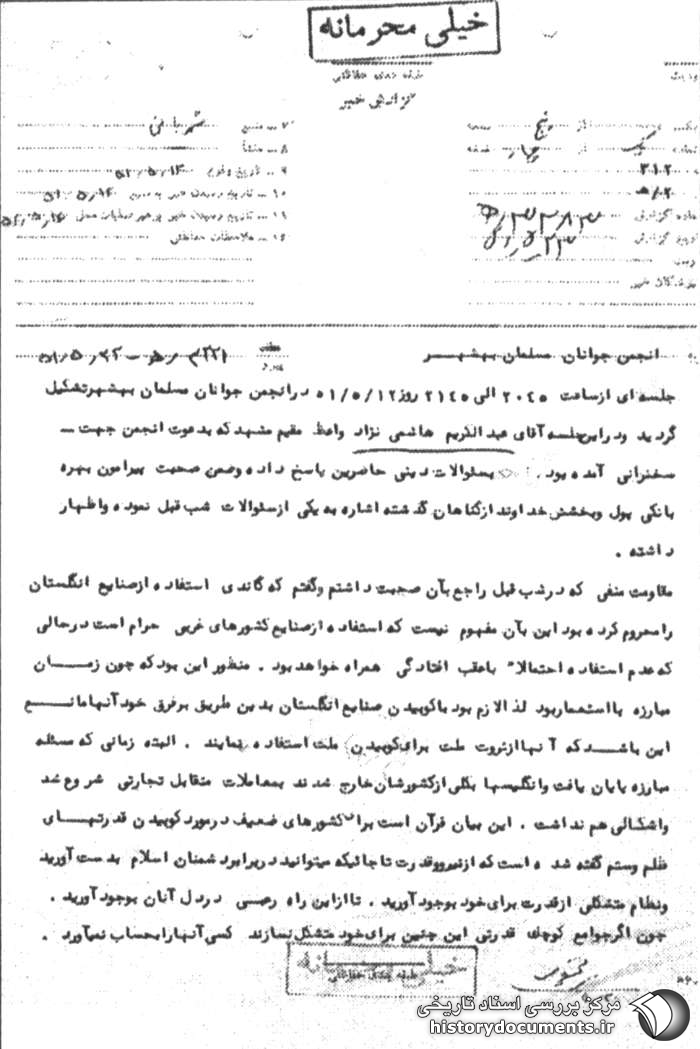 خیلی محرمانه
طبقه بندی حفاظتی
گزارش خبر
۷ ـ منبع
۸ ـ منشأ
۹ ـ تاریخ وقوع ۵۱،۵،۱۲
۱۰ ـ تاریخ رسیدن خبر به منبع
۱۱ ـ تاریخ رسیدن خبر برهبر عملیات محل
۱۲ ـ ملاحظات حفاظتی
۳۱۲
گیرندگان خبر
انجمن جوانان مسلمان بهشهر
جلسه ای ازساعت ۲۰۴۵ الی ۲۱۴۵ روز ۵۱/۵/۱۲ درانجمن جوانان مسلمان بهشهرتشکیل
گردید ودراین جلسه آقای عبدالکریم هاشمی نژاد واعظ مقیم مشهد که بدعوت انجمن جهت ـ
سخنرانی آمده بود . بسئوالات دینی حاضرین پاسخ داده وضمن صحبت پیرامون بهره
بانکی پول وبخشش خداوند ازگناهان گذشته اشاره به یکی ازسئوالات شب قبل نموده واظهار
داشته .
مقاومت منفی که درشب قبل راجع بآن صحبت داشتم وگفتم که گاندی استفاده ازصنایع انگلستان
رامحروم کرده بود این بآن مفهوم نیست که استفاده ازصنایع کشورهای غربی حرام است درحالی
که عدم استفاده احتمالا" باعقب افتادگی همراه خواهد بود . منظور این بود که چون زمــان
مبارزه بااستعماربود لذا لازم بود باکوبیدن صنایع انگلستان بدین طریق برفرق خود آنهامانــع
این باشــد که آنهاازثروت ملت برای کوبیدن ملت استفاده نمایند . البته زمانی که مسئله
مبارزه پایان یافت وانگلیسها بکلی ازکشورشان خارج شدند بمعاملات متقابل تجارتی شروع شد
واشکالی هم نداشت . این بیان قرآن است برای کشورهای ضعیف درمورد کوبیدن قدرتهــای
ظلم وستم گفته شده است که ازنیرووقدرت تاجائیکه میتوانید دربرابر دشمنان اسلام بدست آورید
ونظام متشکلی ازقدرت برای خود بوجود آورید . تاازاین راه رعبی دردل آنان بوجود آورید .
چون اگرجوامع کوچک قدرتی این چنین برای خود متشکل نسازند کسی آنهارابحساب نمیآورد .
خیلی محرمانه
طبقه بندی حفاظتی
مرکز بررسی اسناد تاریخی
historydocuments.ir